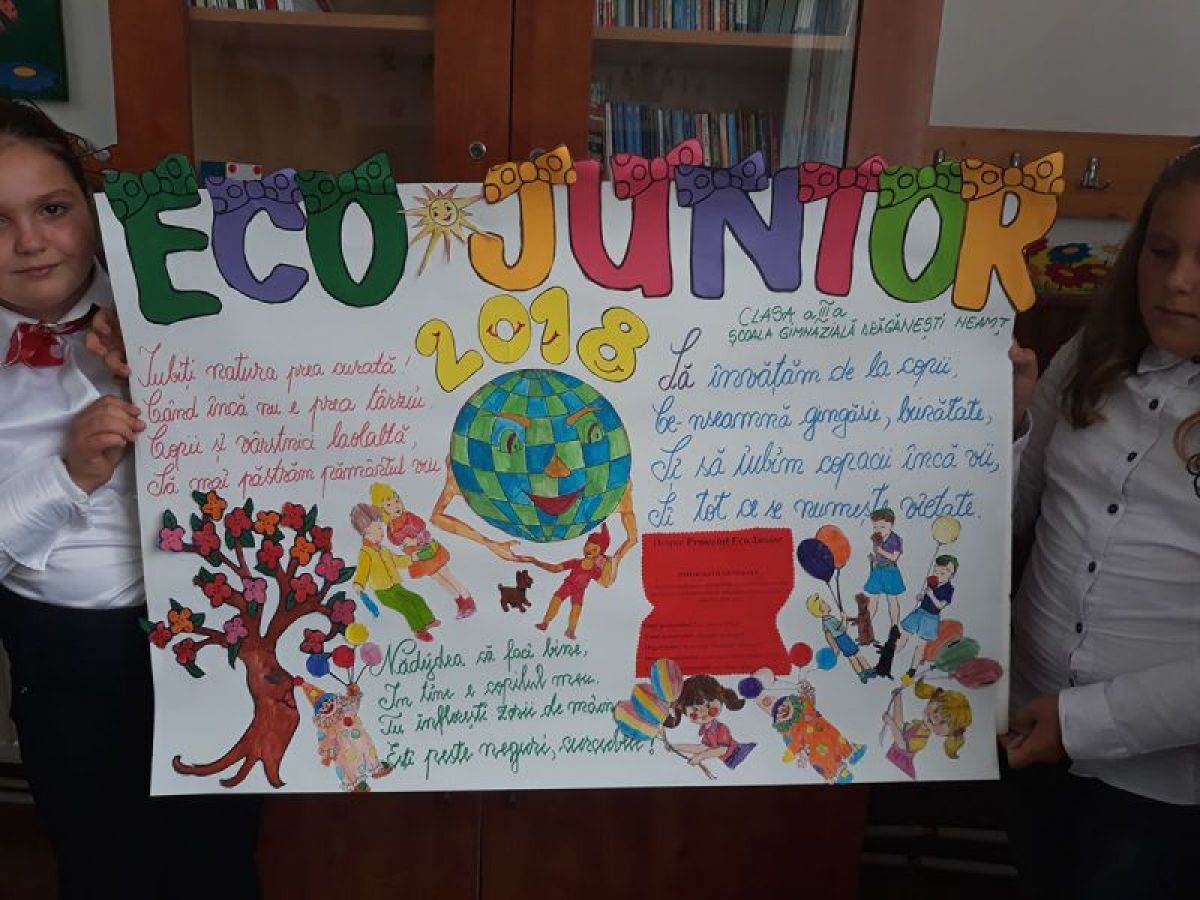 ECO JUNIOR
2018
CLASA a III a
ȘCOALA GIMNAZIALĂ BĂGĂNEȘTI NEAMȚ
Iubiti natura prea curată!
Când încă nu e prea târziu.
Copii și vârstnici laolaltă,
Să mai păstrăm pământul viu
Să învățăm de la copii,
Ce-nseamnă gingășie, bunătate,
Si să iubim copacii încă vii,
Si tot ce se numește vietate.
Despre Proiectul Eco-Junior
INFORMAȚII GENERALE
Nădejdea să faci bine,
In tine e copilul meu.
Tu înflorești zorii de mâine
Esti peste neguri, curcubeu!